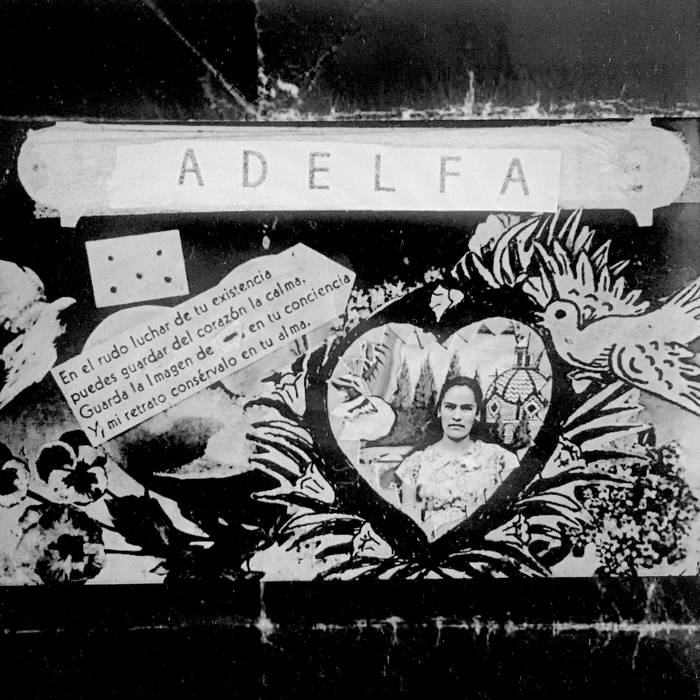 ADELFA
En el rudo luchar de tu existencia
puedes guardar del corazón la calma.
Guarda la Imagen de en tu conciencia
Y, mi retrato consérvalo en tu alma.